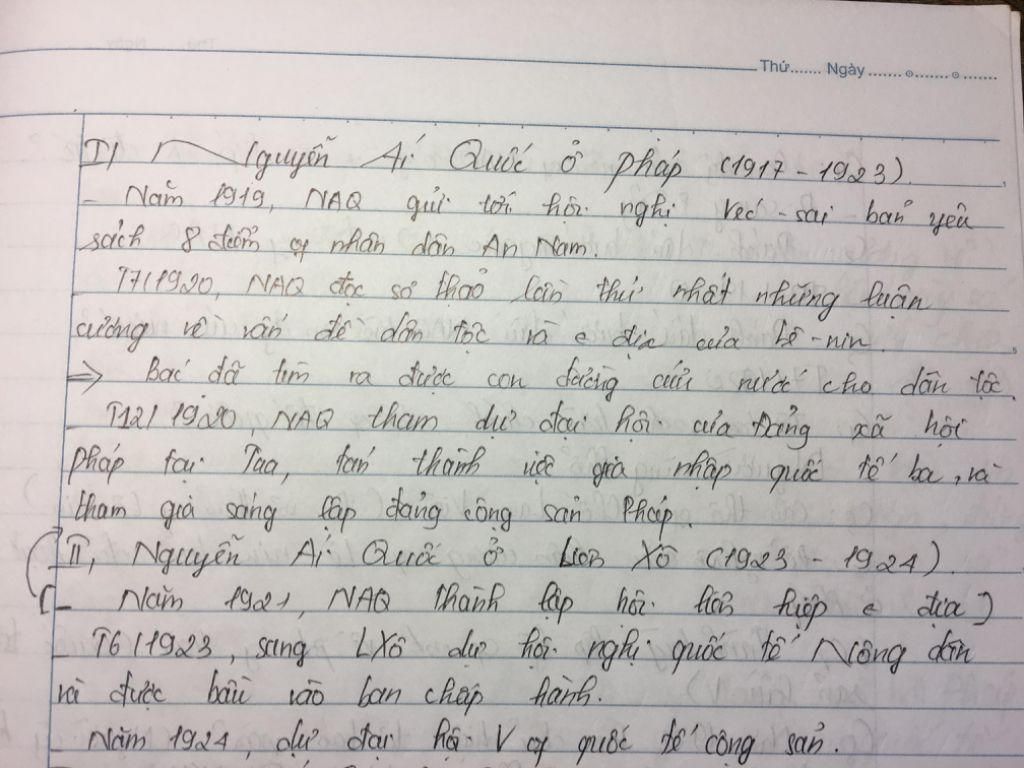 Thứ....... Ngày ....... ........ ........
I, Nguyễn Ái Quốc ở Pháp (1917 - 1923).
- Năm 1919, NAQ gửi tới hội nghị Véc-sai bản yêu
sách 8 điểm of nhân dân An Nam.
- T7/1920, NAQ đọc sơ thảo lần thứ nhất những luận
cương về vấn đề dân tộc và e địa của Lê-nin.
=> Bác đã tìm ra được con đường cứu nước cho dân tộc.
- T12/1920, NAQ tham dự đại hội của Đảng xã hội
Pháp tại Tua, tán thành việc gia nhập quốc tế ba, và
tham gia sáng lập đảng cộng sản Pháp.
II, Nguyễn Ái Quốc ở Liên Xô (1923 - 1924).
[- Năm 1921, NAQ thành lập hội liên hiệp e địa]
- T6/1923, sang LXô dự hội nghị quốc tế Nông dân
và được bầu vào ban chấp hành.
- Năm 1924, dự đại hội V of quốc tế cộng sản.